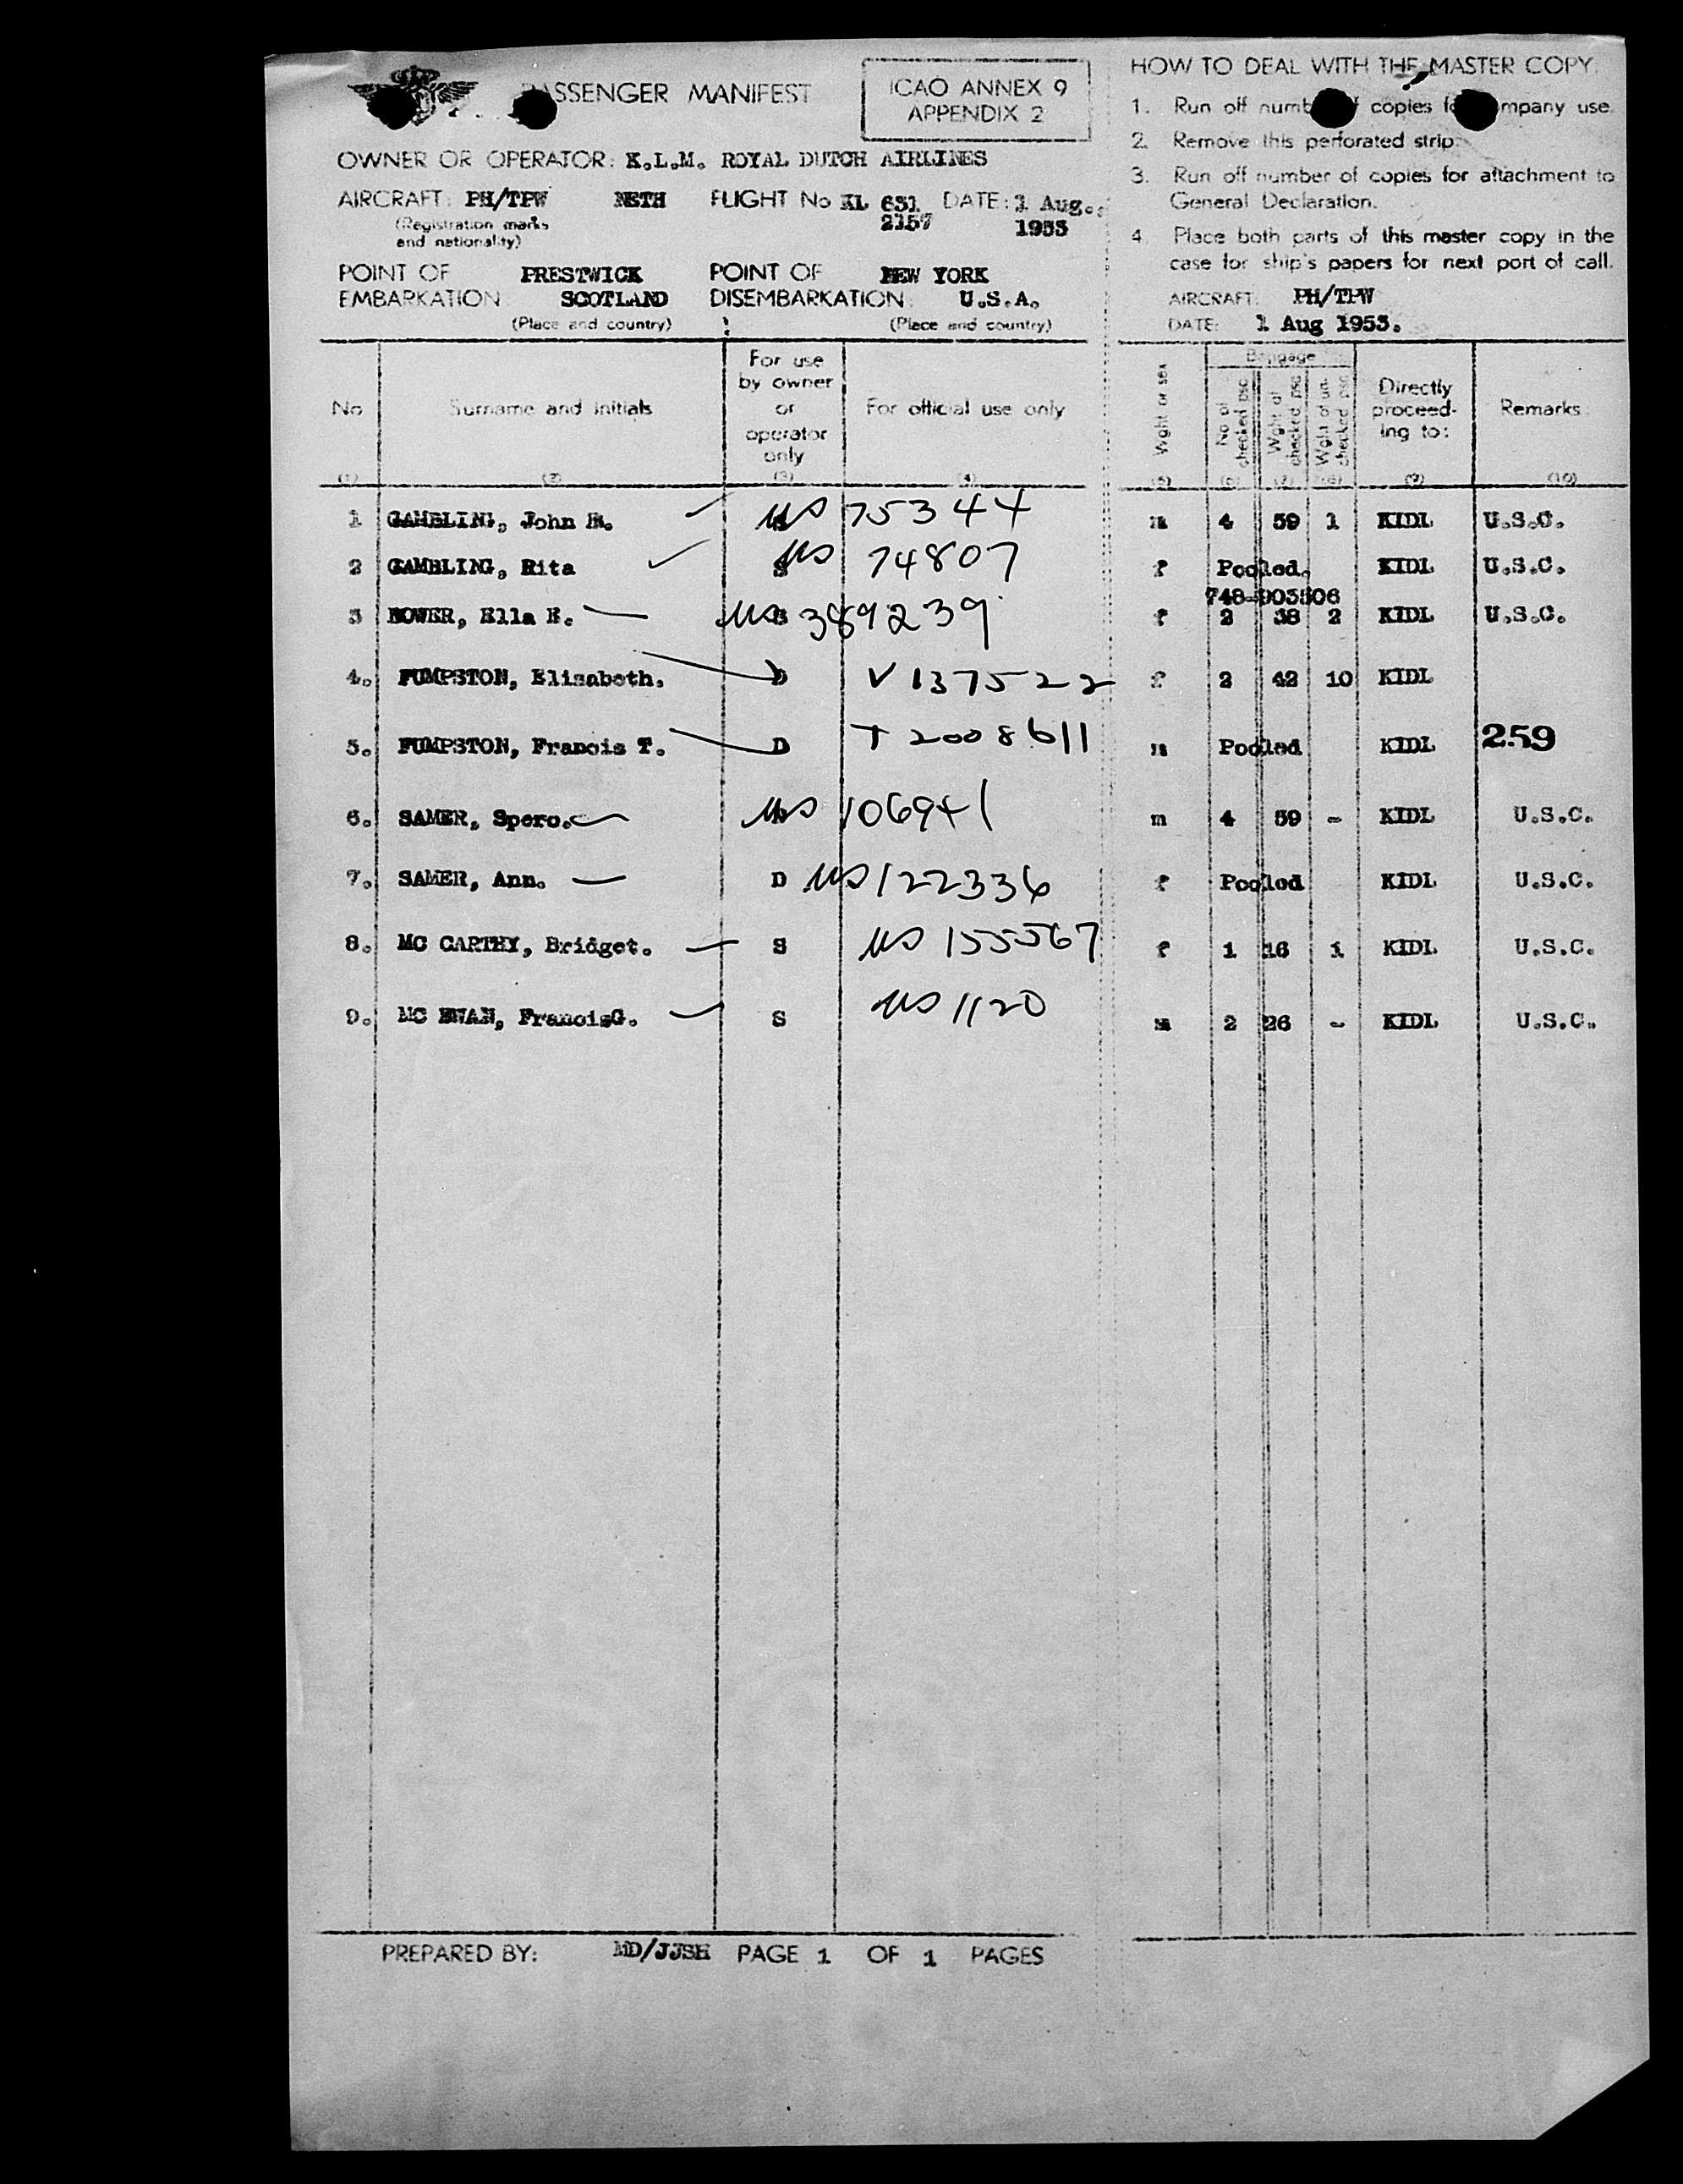 PASSENGER MANIFEST
ICAO ANNEX 9
APPENDIX 2
OWNER OR OPERATOR: K.L.M. ROYAL DUTCH AIRLINES
AIRCRAFT: PH/TPW NETH FLIGHT No KL 631 DATE: 1 Aug.
(Registration marks and nationality) 2157 1953
POINT OF EMBARKATION: PRESTWICK SCOTLAND
(Place and country)
POINT OF DISEMBARKATION: NEW YORK U.S.A.
(Place and country)
HOW TO DEAL WITH THE MASTER COPY
1. Run off copies company use.
2. Remove this perforated strip.
3. Run off number of copies for attachment to
General Declaration.
4. Place both parts of this master copy in the
case for ship's papers for next port of call.
AIRCRAFT: PH/TPW
DATE: 1 Aug 1953.
No Surname and initials For use by owner or operator only For official use only Wght or sex Baggage No of checked psc Wght of checked psc Wght of un-checked psc Directly proceed-ing to: Remarks
(1) (2) (3) (4) (5) (6) (7) (8) (9) (10)
1 GAMBLING, John B. US 75344 m 4 59 1 KIDL U.S.C.
2 GAMBLING, Rita US 74807 f Pooled. KIDL U.S.C.
748-903506
3 BOWER, Ella E. US 389239 f 2 38 2 KIDL U.S.C.
4. FUMPSTON, Elisabeth. D V 137522 f 2 42 10 KIDL
5. FUMPSTON, Francis T. D T 2008611 m Pooled KIDL 259
6. SAMER, Spero. US 106941 m 4 59 - KIDL U.S.C.
7. SAMER, Ann. D US 122336 f Pooled KIDL U.S.C.
8. MC CARTHY, Bridget. S US 155567 f 1 16 1 KIDL U.S.C.
9. MC EWAN, FrancisG. S US 1120 m 2 26 - KIDL U.S.C.
PREPARED BY: MD/JJSH PAGE 1 OF 1 PAGES